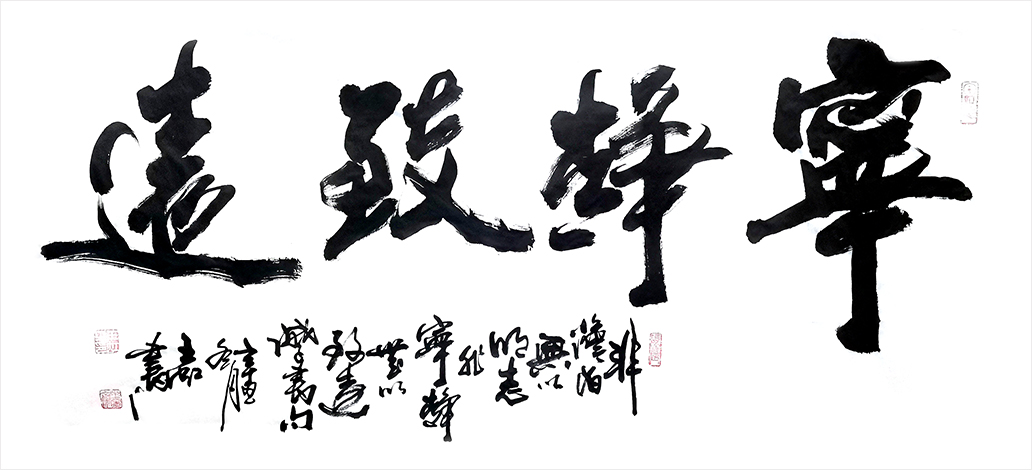 寧靜致遠
非
澹泊
無以
明志
非
寧靜
無以
致遠
誡子書句
冬月
書